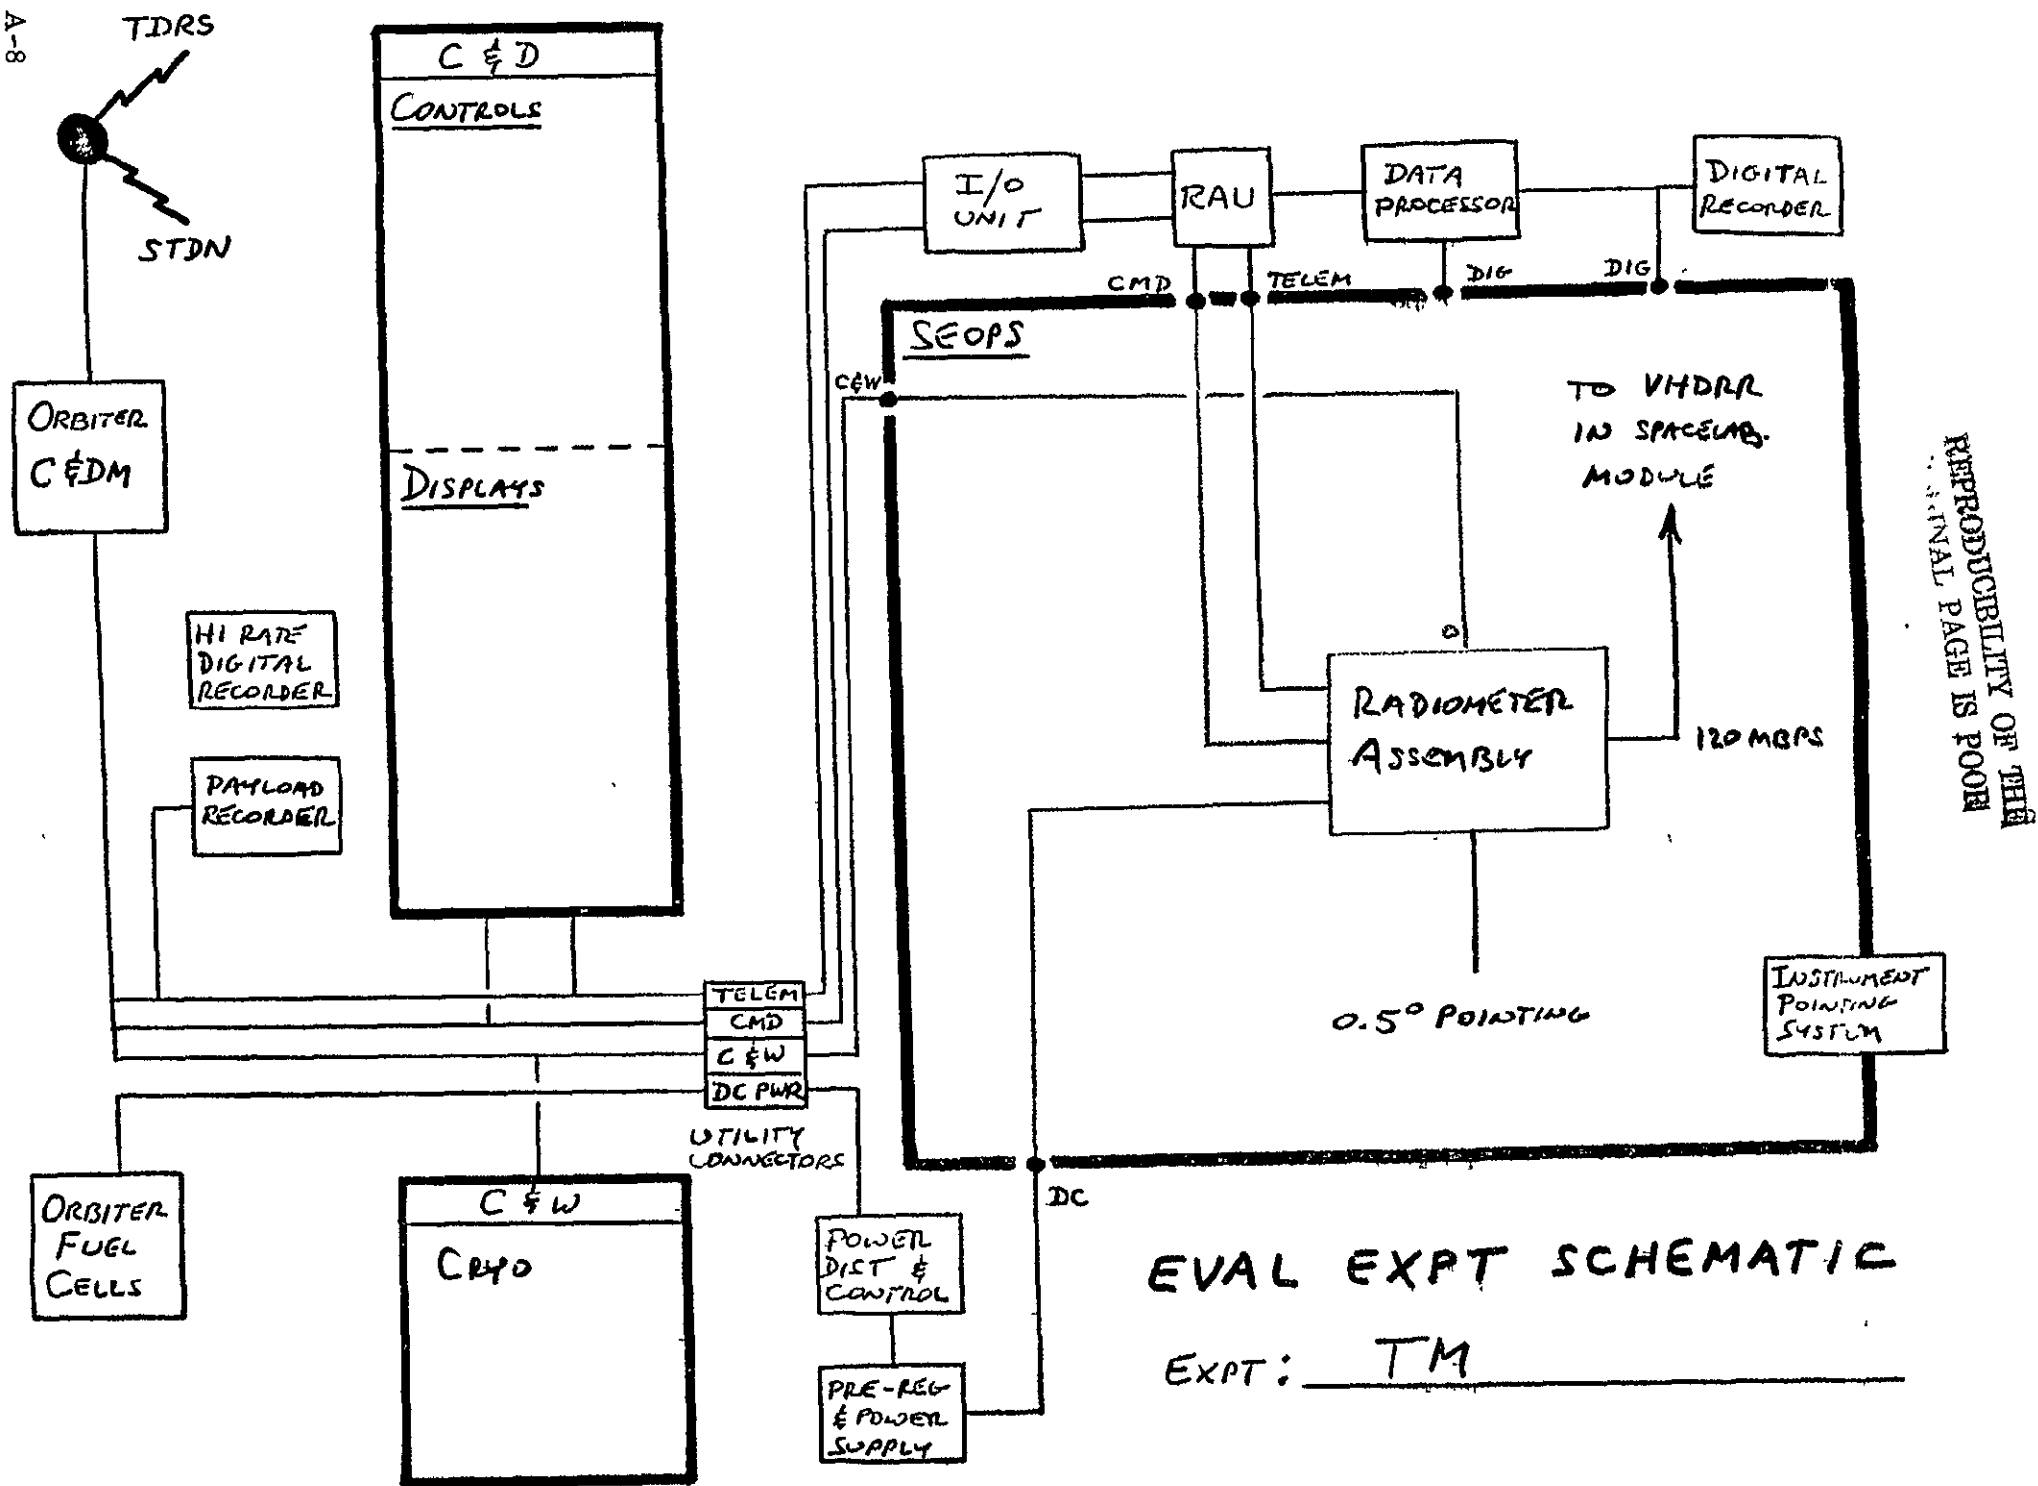 A-8
TDRS
STDN
C & D
CONTROLS
DISPLAYS
ORBITER
C & DM
HI RATE
DIGITAL
RECORDER
PAYLOAD
RECORDER
I/O
UNIT
RAU
DATA
PROCESSOR
DIGITAL
RECORDER
CMD
TELEM
DIG
DIG
SEOPS
C&W
TO VHDRR
IN SPACELAB.
MODULE
RADIOMETER
ASSEMBLY
120 MBPS
0.5° POINTING
INSTRUMENT
POINTING
SYSTEM
TELEM
CMD
C & W
DC PWR
UTILITY
CONNECTORS
ORBITER
FUEL
CELLS
C & W
CRYO
POWER
DIST &
CONTROL
PRE-REG
& POWER
SUPPLY
DC
EVAL EXPT SCHEMATIC
EXPT: TM
REPRODUCIBILITY OF THE
PAGE IS POOR